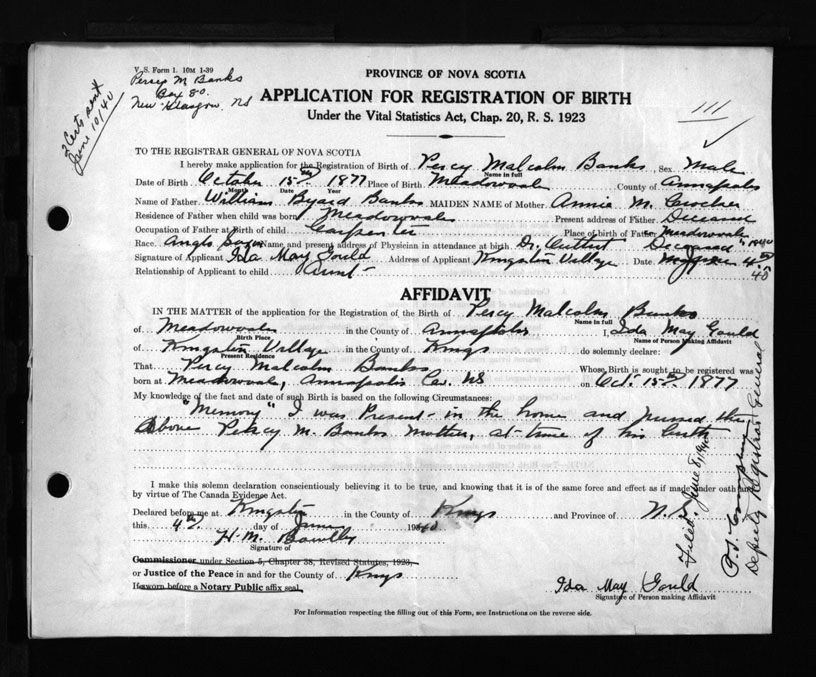 V. S. Form 1. 10M 1-39
Percy M Banks
Box 80.
New Glasgow, NS
2 Certs sent
June 10/40
111
PROVINCE OF NOVA SCOTIA
APPLICATION FOR REGISTRATION OF BIRTH
Under the Vital Statistics Act, Chap. 20, R. S. 1923
TO THE REGISTRAR GENERAL OF NOVA SCOTIA
I hereby make application for the Registration of Birth of Percy Malcolm Banks, Sex Male
Name in full
Date of Birth October 15th 1877 Place of Birth Meadowvale County of Annapolis
Month Date Year
Name of Father William Byard Banks MAIDEN NAME of Mother Annie M.
Residence of Father when child was born Meadowvale Present address of Father Deceased
Occupation of Father at Birth of child Carpenter Place of birth of Father Meadowvale
Race. Anglo Saxon Name and present address of Physician in attendance at birth. Dr. Deceased 1940
Signature of Applicant Ida May Gould Address of Applicant Kingston Village Date 4th
40
Relationship of Applicant to child Aunt
AFFIDAVIT
IN THE MATTER of the application for Registration of the Birth of Percy Malcolm Banks
Name in full
of Meadowvale in the County of Annapolis I, Ida May Gould
Birth Place Name of Person Making Affidavit
of Kingston Village in the County of Kings do solemnly declare:
Present Residence
That Percy Malcolm Banks Whose Birth is sought to be registered was
born at Meadowvale, Annapolis Co. NS on Oct. 15th 1877
My knowledge of the fact and date of such Birth is based on the following Circumstances:
"Memory" I was Present in the home and nursed the
above Percy M. Banks Mother, at time of his birth
I make this solemn declaration conscientiously believing it to be true, and knowing that it is of the same force and effect as if made under oath and
by virtue of The Canada Evidence Act.
Declared before me at Kingston in the County of Kings and Province of N.S.
this 4th day of June 1940
H. M. Bowlby
Signature of
Commissioner under Section 5, Chapter 38, Revised Statutes, 1923,
or Justice of the Peace in and for the County of Kings
If sworn before a Notary Public affix seal.
Ida May Gould
Signature of Person making Affidavit
For Information respecting the filling out of this Form, see Instructions on the reverse side.
Filed. June 8, 1940
Deputy Registrar General